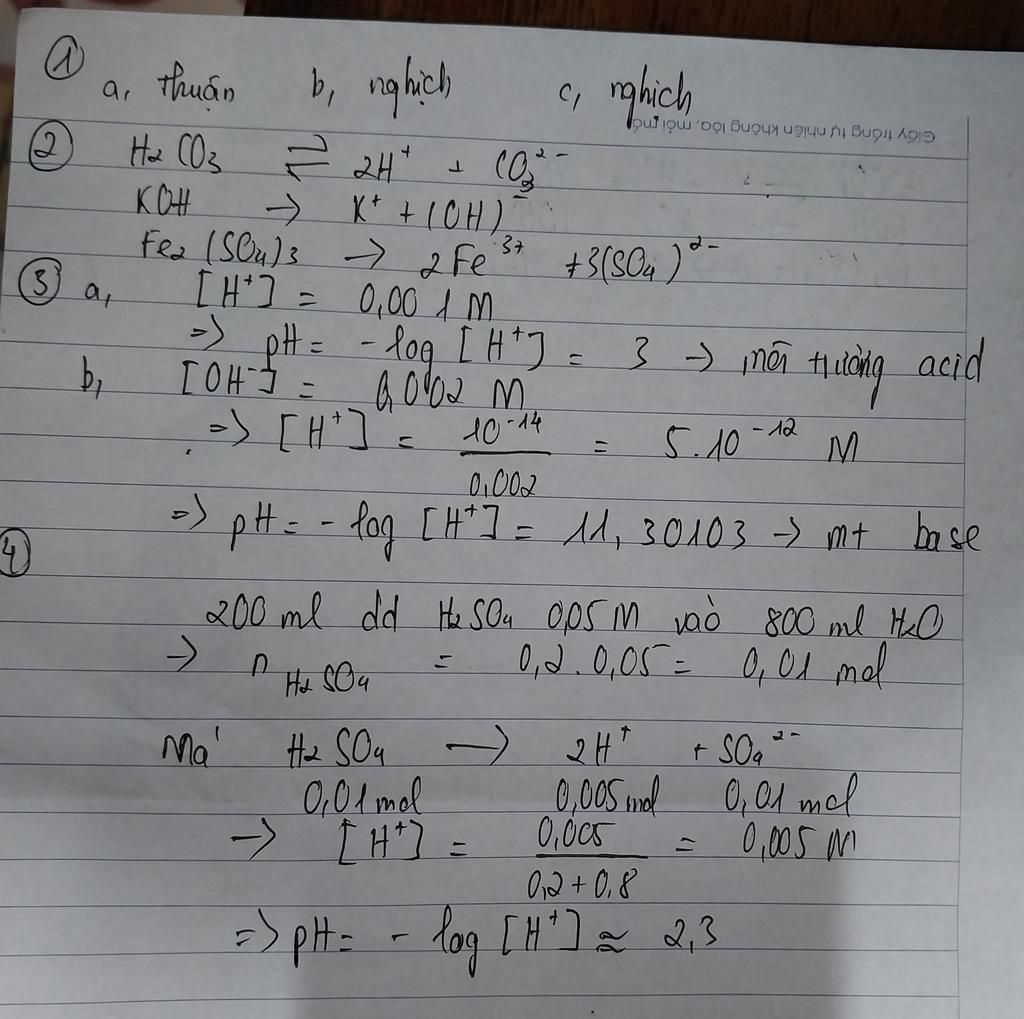 ① a, thuận b, nghịch c, nghịch
Giấy trắng tự nhiên không lóa, mỏi mắt
② H₂CO₃ ⇌ 2H⁺ + CO₃²⁻
KOH → K⁺ + (OH)⁻
Fe₂(SO₄)₃ → 2Fe³⁺ + 3(SO₄)²⁻
③ a, [H⁺] = 0,001 M
=> pH = -log [H⁺] = 3 → môi trường acid
b, [OH⁻] = 0,002 M
=> [H⁺] = 10⁻¹⁴ / 0,002 = 5.10⁻¹² M
=> pH = -log [H⁺] = 11,30103 → mt base
④
200 ml dd H₂SO₄ 0,05 M vào 800 ml H₂O
→ n H₂SO₄ = 0,2.0,05 = 0,01 mol
Mà H₂SO₄ → 2H⁺ + SO₄²⁻
0,01 mol 0,005 mol 0,01 mol
→ [H⁺] = 0,005 / 0,2 + 0,8 = 0,005 M
=> pH = -log [H⁺] ≈ 2,3